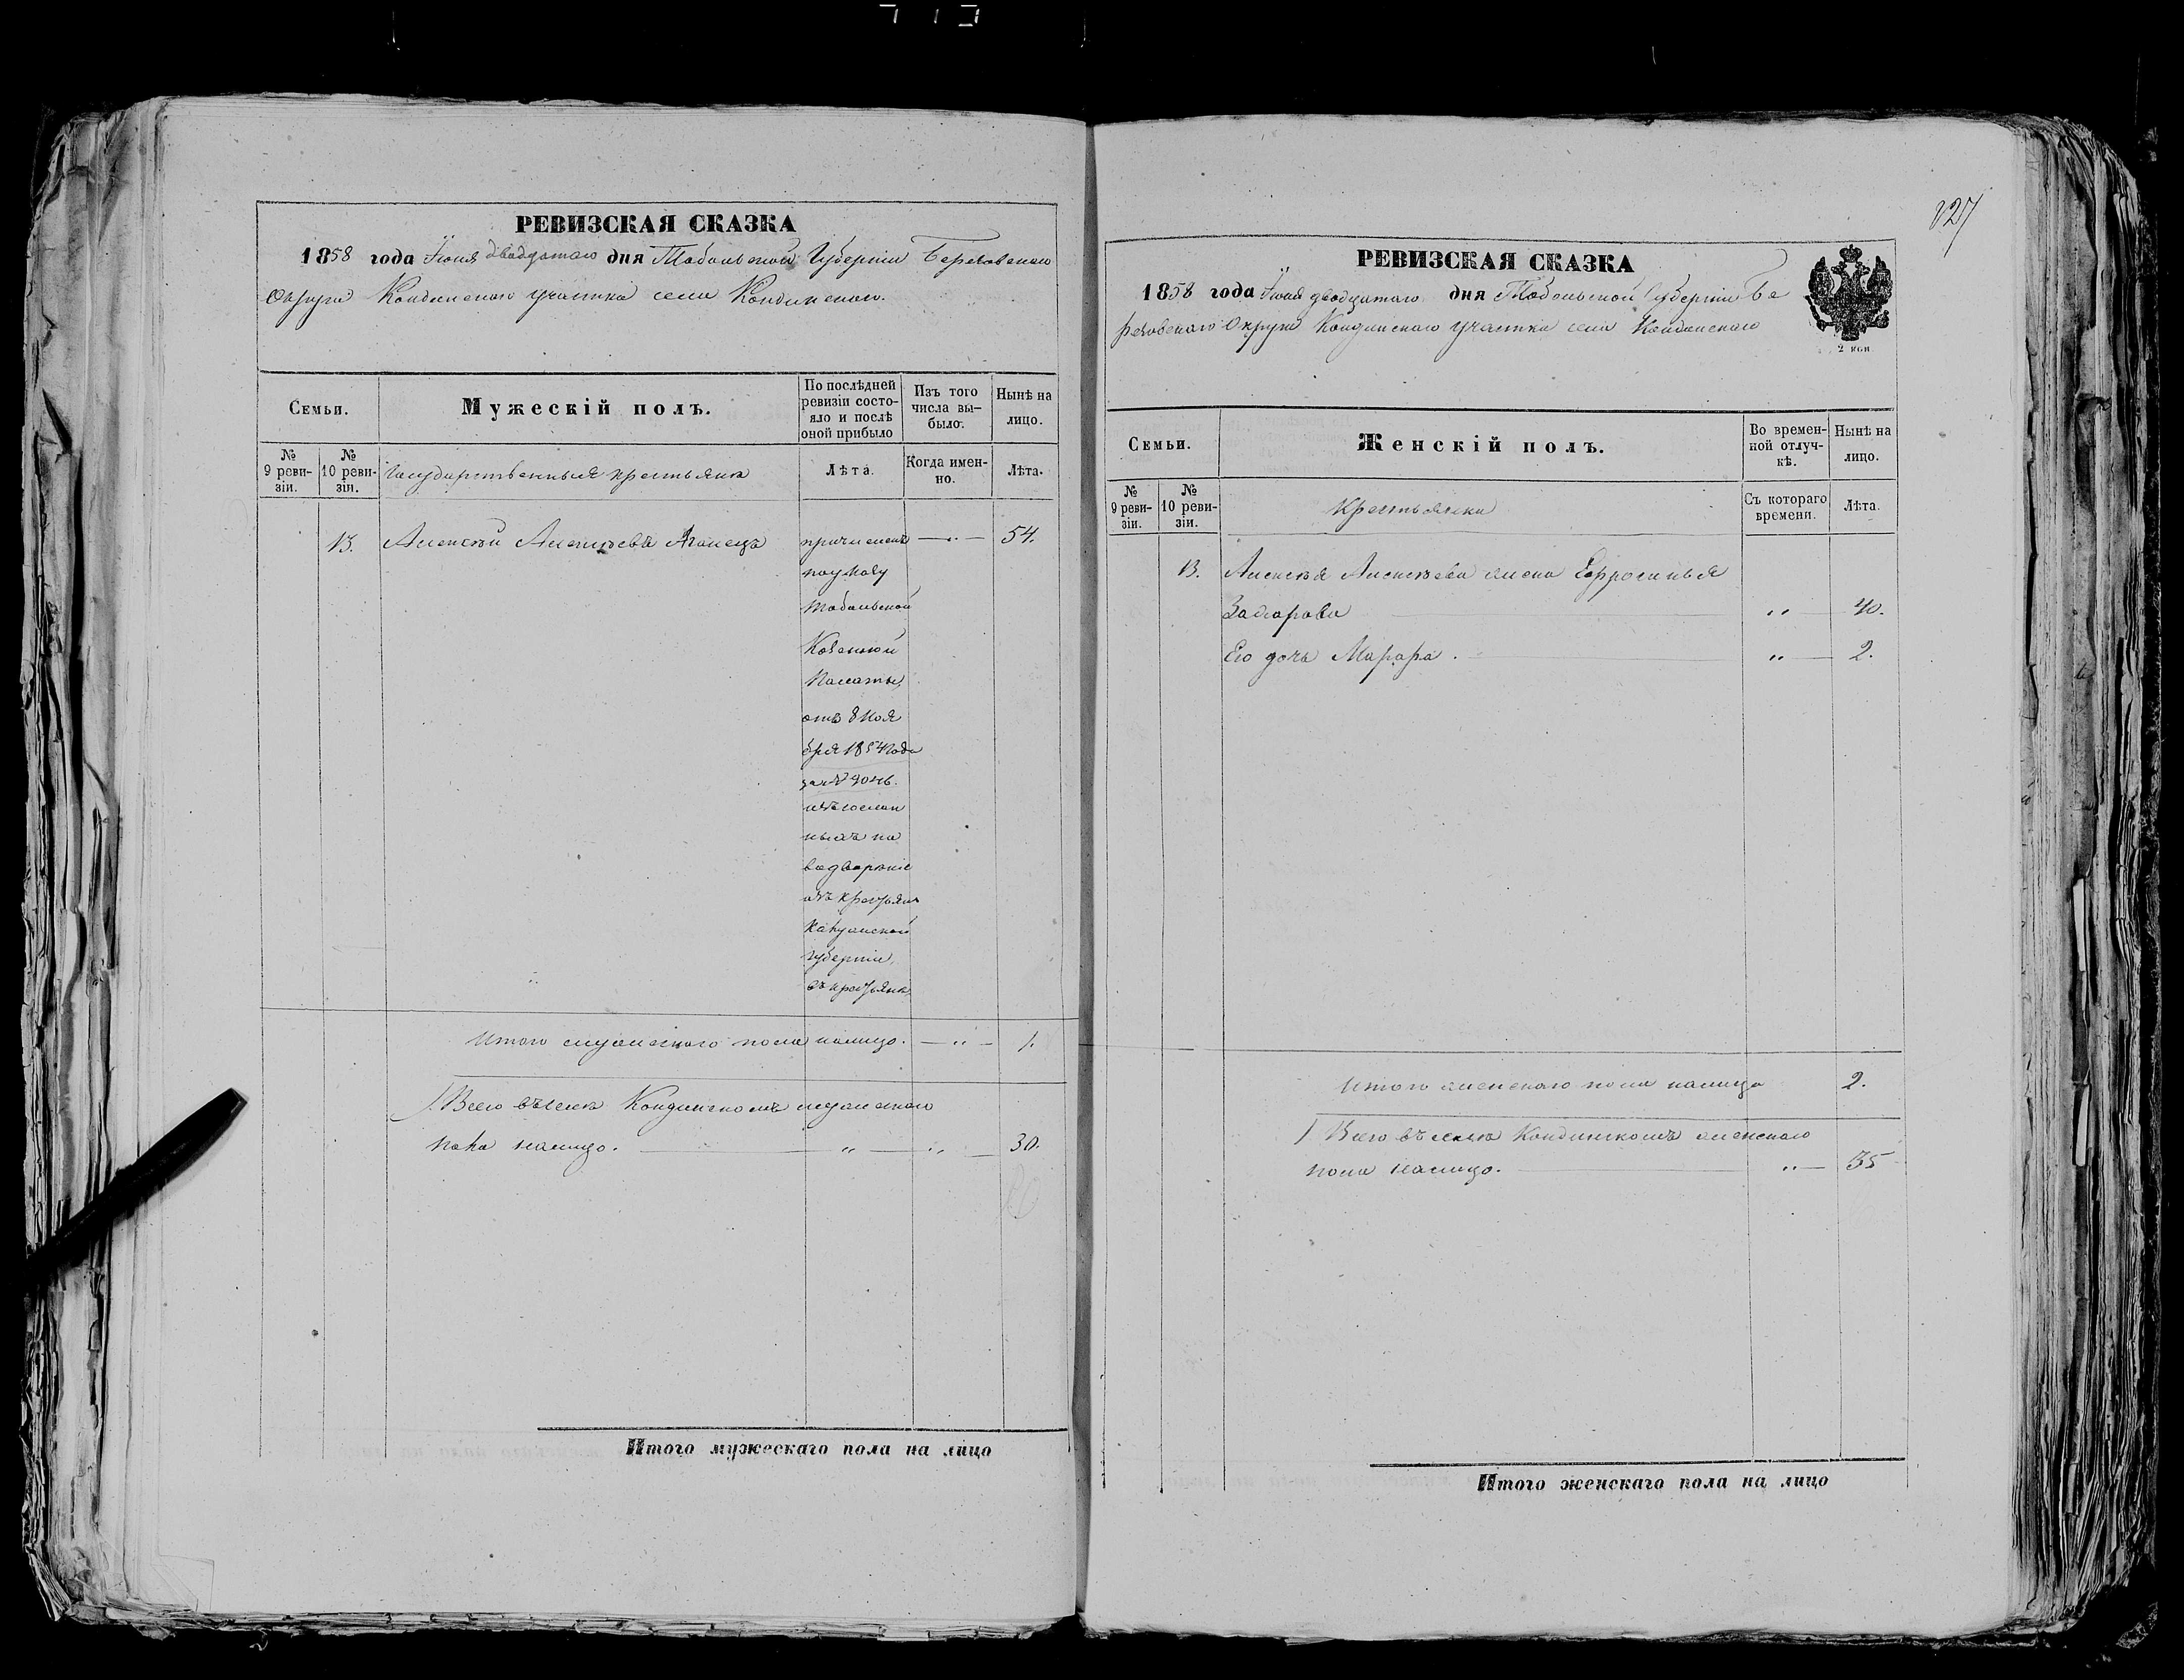 РЕВИЗСКАЯ СКАЗКА
1858 года Іюня двадцатаго дня Тобольской Губерніи Березовскаго
Округа Кондинскаго участка села Кондинскаго.
Семьи.
Мужескій полъ.
По послѣдней
ревизіи состо-
яло и послѣ
оной прибыло
Изъ того
числа вы-
было.
Нынѣ на
лицо.
№
9 реви-
зіи.
№
10 реви-
зіи.
Государственныя крестьяне
Лѣта.
Когда имен-
но.
Лѣта.
13. Алексѣй Алексѣевъ
причисленъ — „ — 54.
по указу
Тобольской
Казенной
Палаты,
отъ 8 Ноя
бря 1854 года
за №
изъ сослан
ныхъ на
водвореніе
изъ крестьянъ
губерніи,
въ крестьяне.
Итого мужескаго пола налицо. — „ — 1.
Всего въ селѣ Кондинскомъ мужескаго
пола налицо. — „ — „ — 30.
Итого мужескаго пола на лицо
127
РЕВИЗСКАЯ СКАЗКА
1858 года Іюня двадцатаго дня Тобольской Губерніи Бе
резовскаго Округа Кондинскаго участка села Кондинскаго
2 коп
Семьи.
Женскій полъ.
Во времен-
ной отлуч-
кѣ.
Нынѣ на
лицо.
№
9 реви-
зіи.
№
10 реви-
зіи.
Крестьянки
Съ котораго
времени.
Лѣта.
13. Алексѣя Алексѣева жена Ефросинья
Захарова — „ — 40.
Его дочь — „ — 2.
Итого женскаго пола налицо 2.
Всего въ селѣ Кондинскомъ женскаго
пола налицо. — „ — 35
Итого женскаго пола на лицо